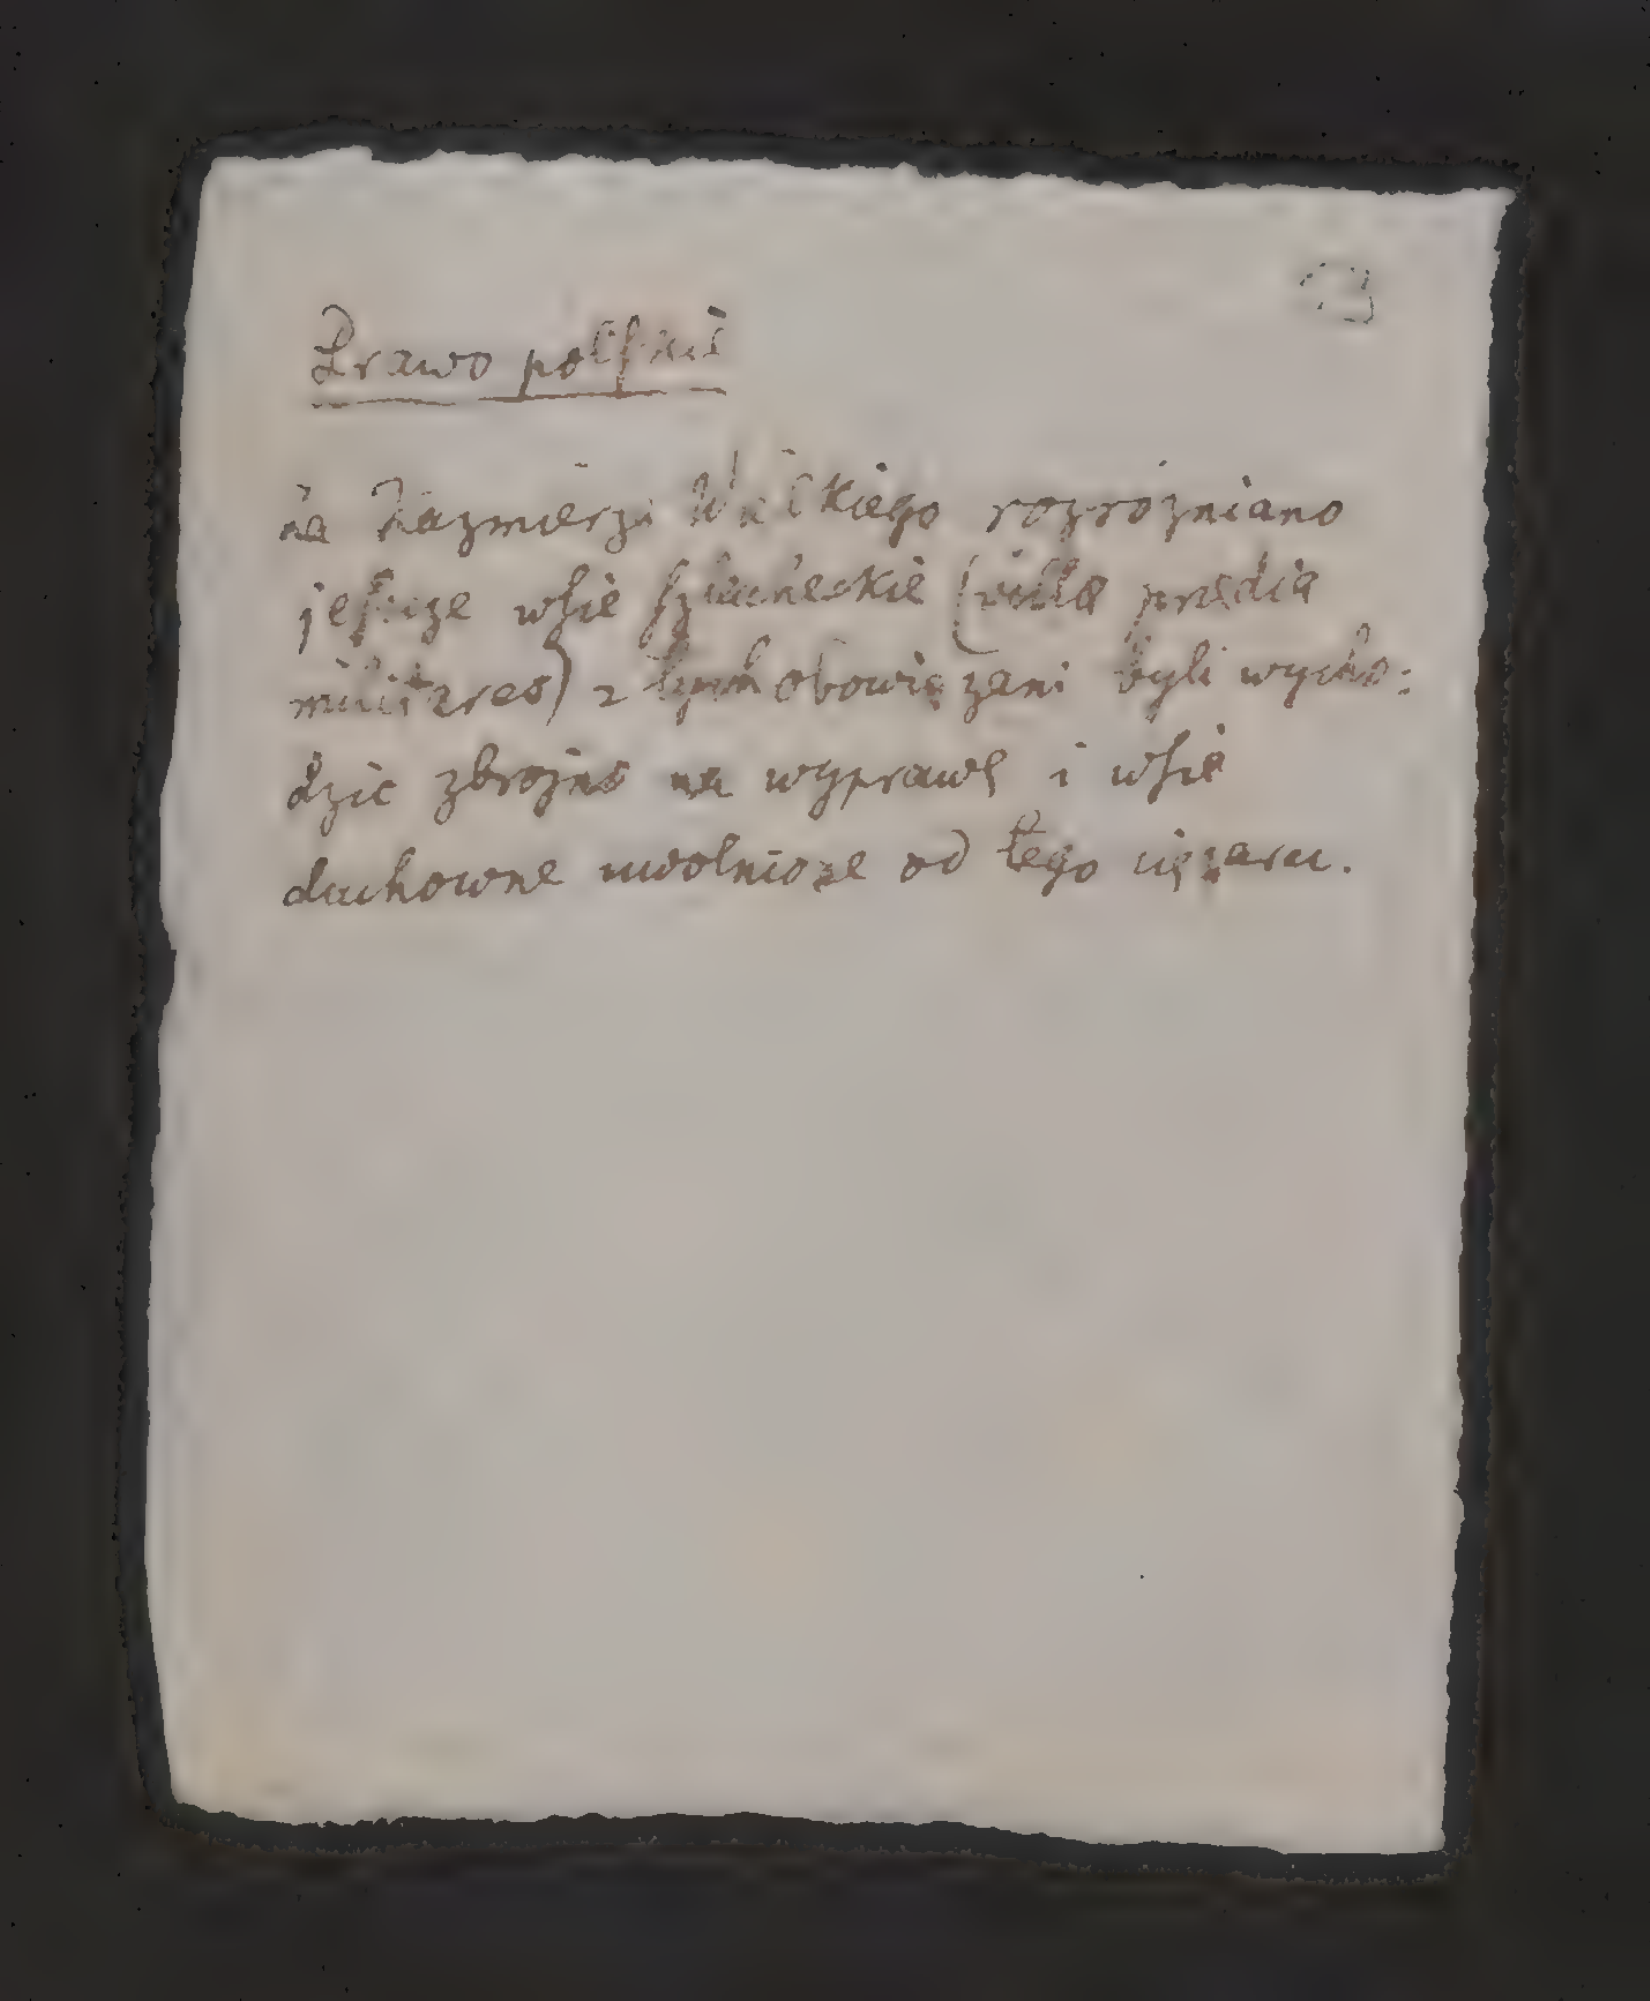 Prawo polskie
za Kazmierza Wielkiego rozrozniano
jeszcze wsie szlacheckie (villa prædia
militares) z tych obowiązani byli wycho:
dzic zbrojno na wyprawę i wsie
duchowne uwolnione od tego cięzaru.